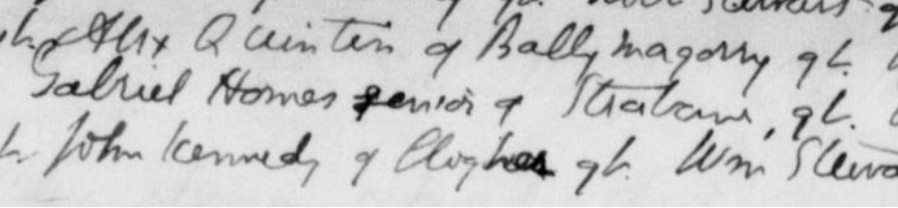 Alix Quintin of Ballymagorry gt.
Gabriel Homes senior of Strabane, gt.
John Kennedy of Clogher gt. Wm Stewa